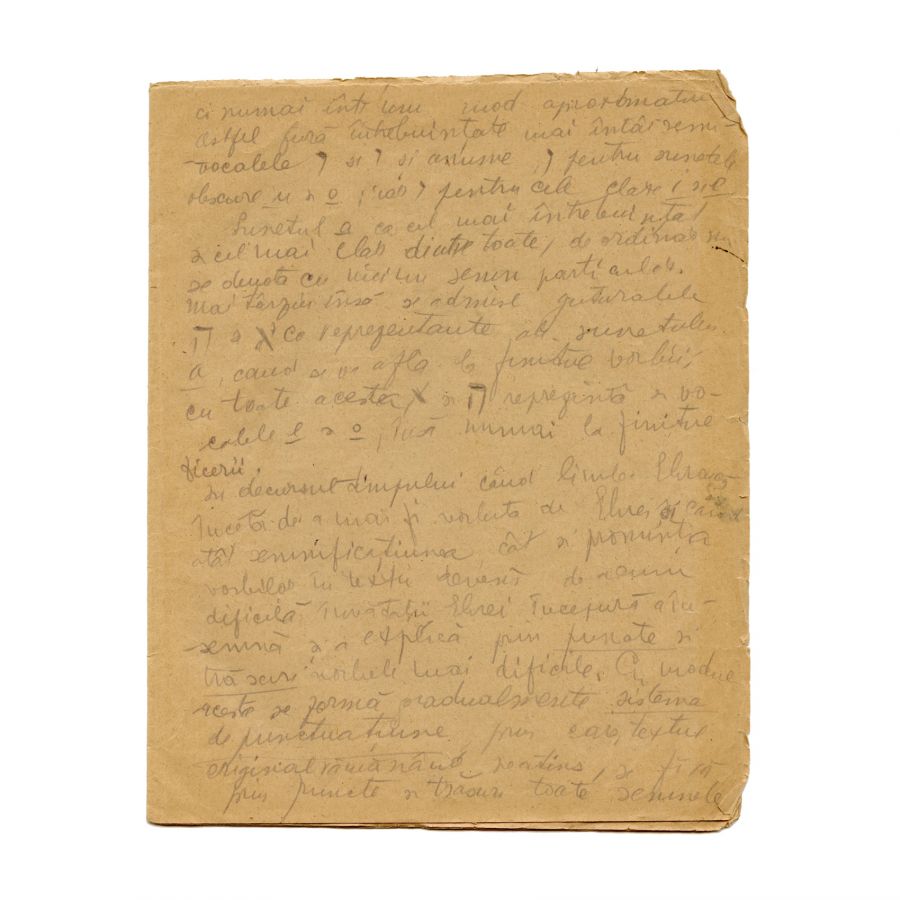 ci numai într'un mod aproximativ
astfel fură întrebuințate mai întâi semi-
vocalele ו și י și anume, ו pentru sunetele
obscure u și o, iar י pentru cele clare i și e
Sunetul a ca cel mai întrebuințat
și cel mai clar dintre toate, de ordinar nu
se denota cu niciun semn particular.
Mai târziu însă se admise guturalele
ה și א ca reprezentante ale sunetului
a, când se va afla la finitue vorbii,
cu toate acestea, א și ה reprezintă și vo-
calele e și o, însă numai la finitue
zicerii.
În decursul timpului când limba Ebraică
înceta de a mai fi vorbita de Ebrei și când
atât semnificațiunea cât și pronunția
vorbilor în textu deveni de
dificilă învățații Ebrei începură a în-
semnă și a explică prin puncte și
trăsuri vorbele mai dificile. Cu modul
acesta se formă gradualmente sistema
de punctuațiune, prin care, textul
original rămânând neatins, se
prin puncte și trăsuri toate semnele